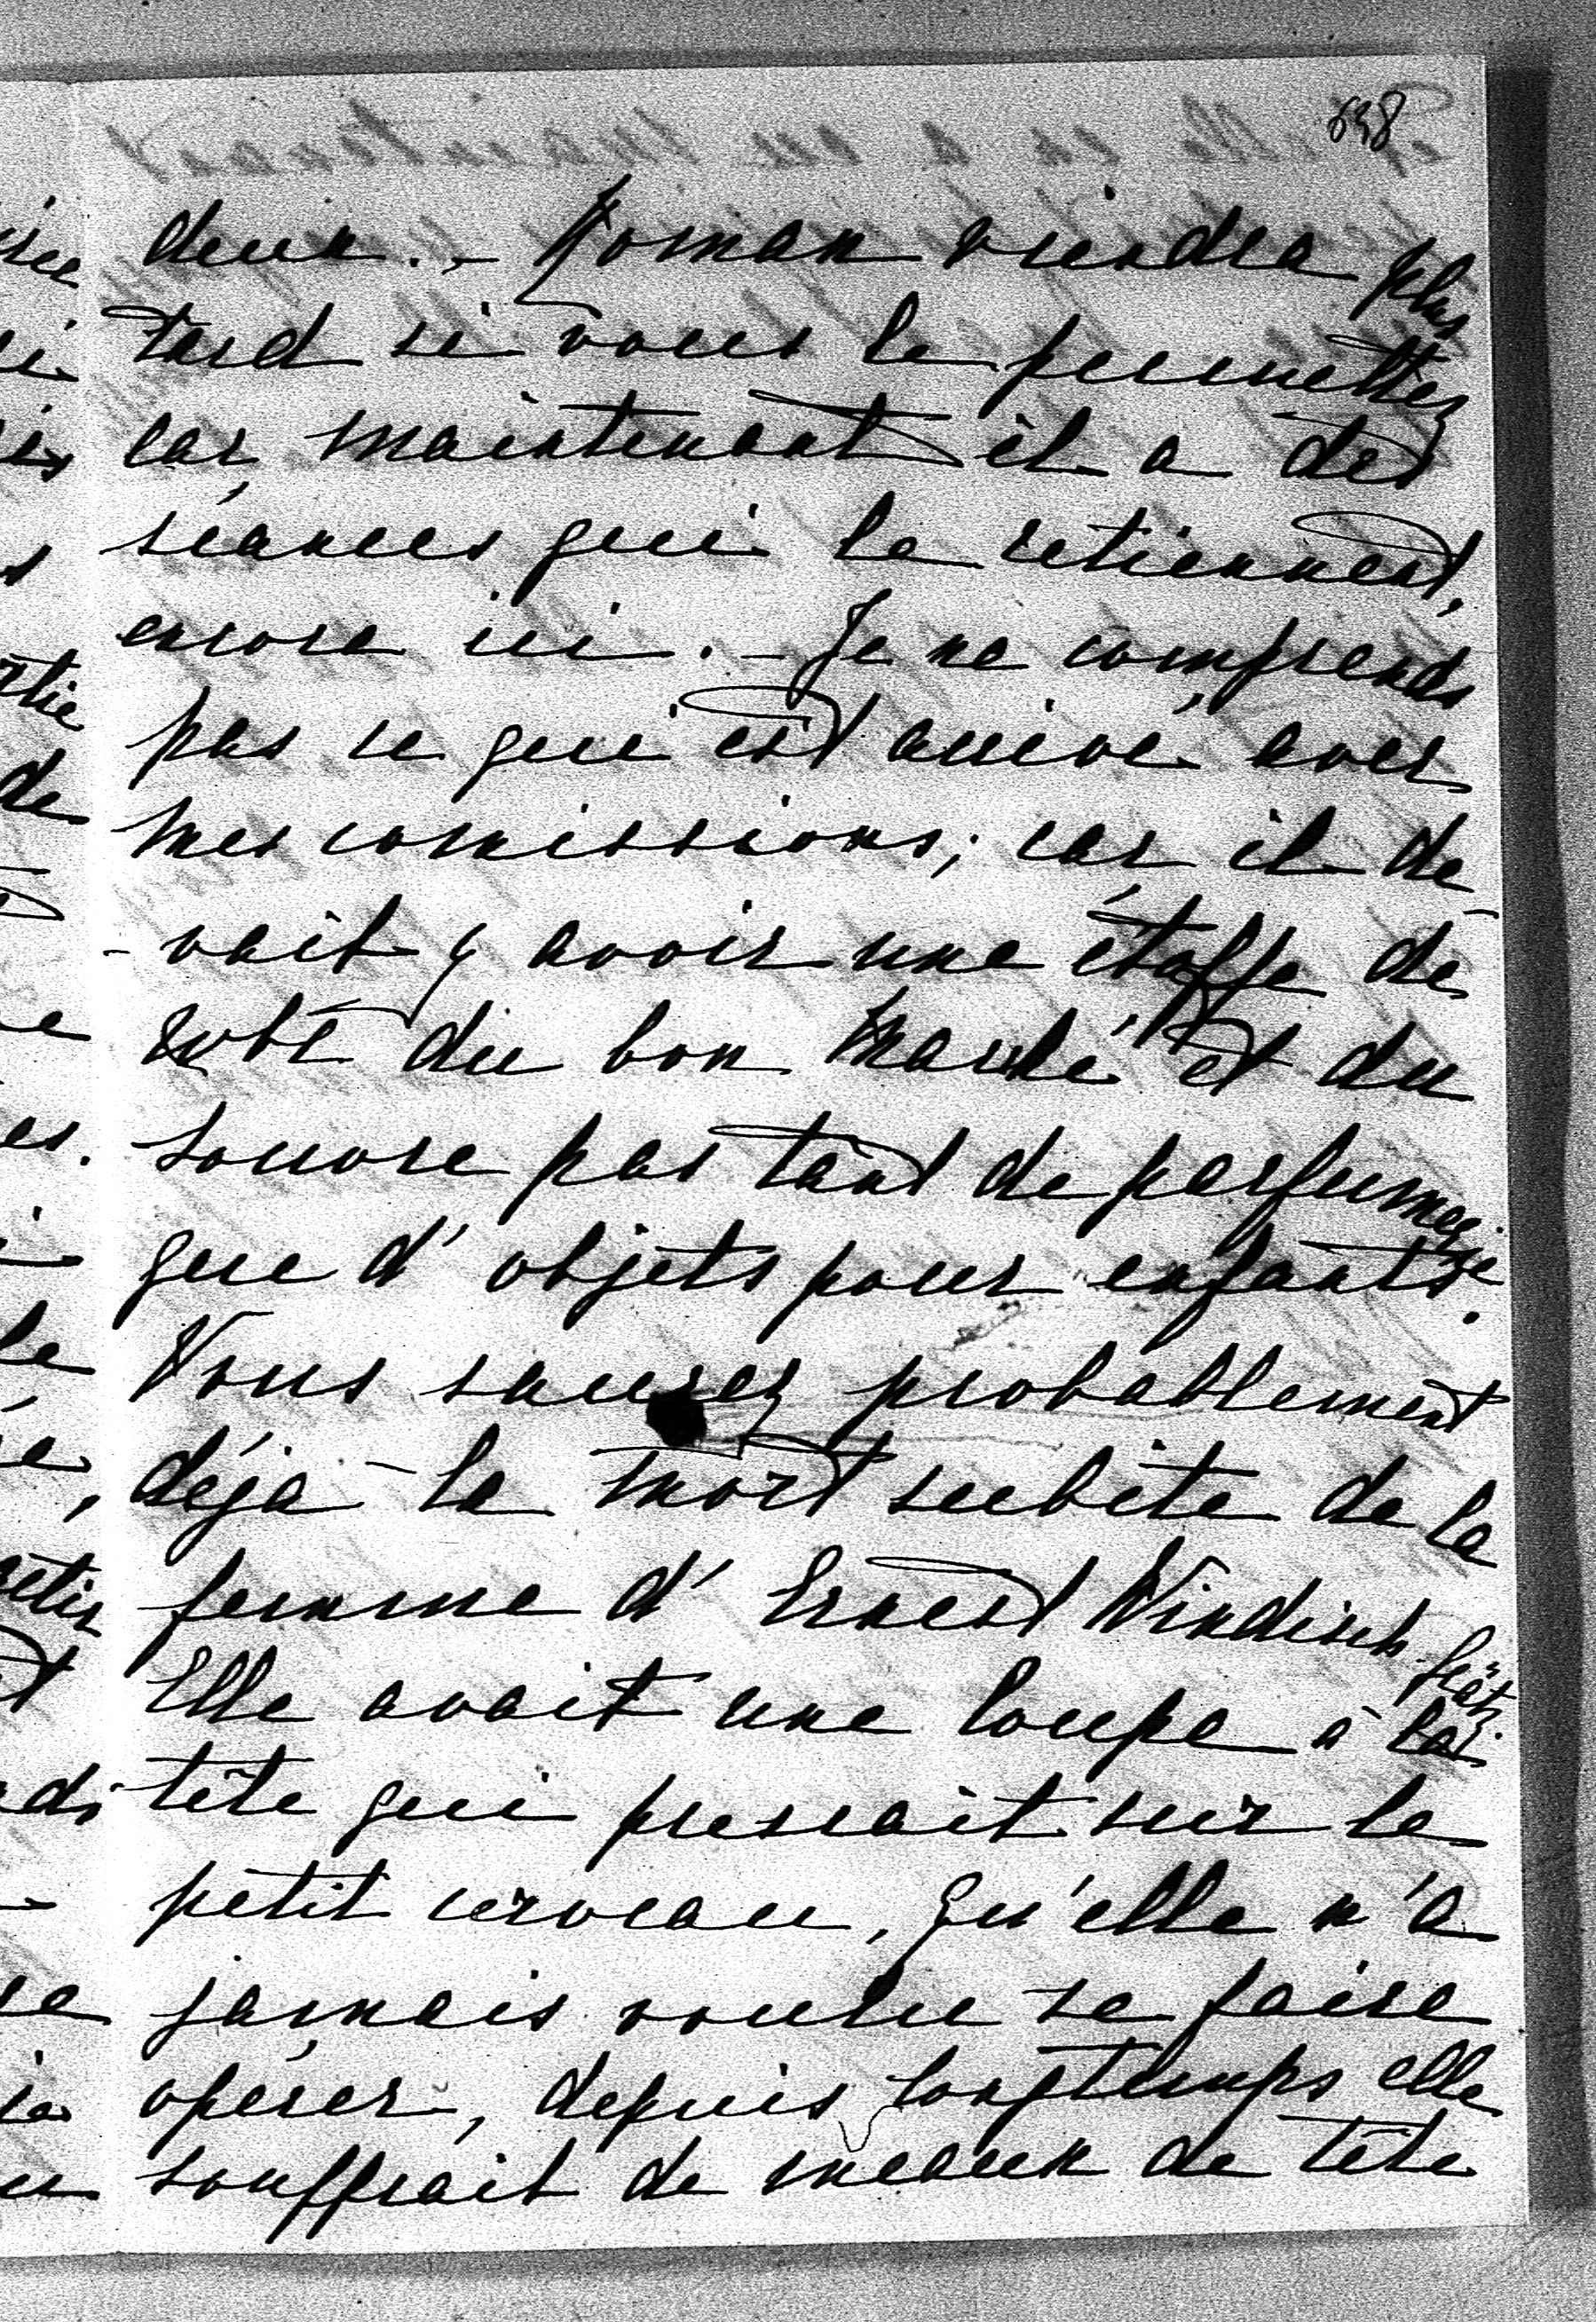 638
deux. - Roman viendra plus
tard si vous le permettez
car, maintenant il a des
séances qui le retiennent,
encore ici. - Je ne comprends
pas ce qui est arrivé avec
mes comissions; car il de
- vait y avoir une étoffe de
robe du bon Marché et du
Louvre pas tant de parfumerie
que d'objets pour enfants.
Vous saurez probablement
déja la mort subite de la
femme d'Ernest Windisch-
Grätz.
Elle avait une loupe à la
tête qui pressait sur le
petit cerveau, qu'elle n'a
jamais voulu se faire
opérer, depuis longtemps elle
souffrait de meaux de tête